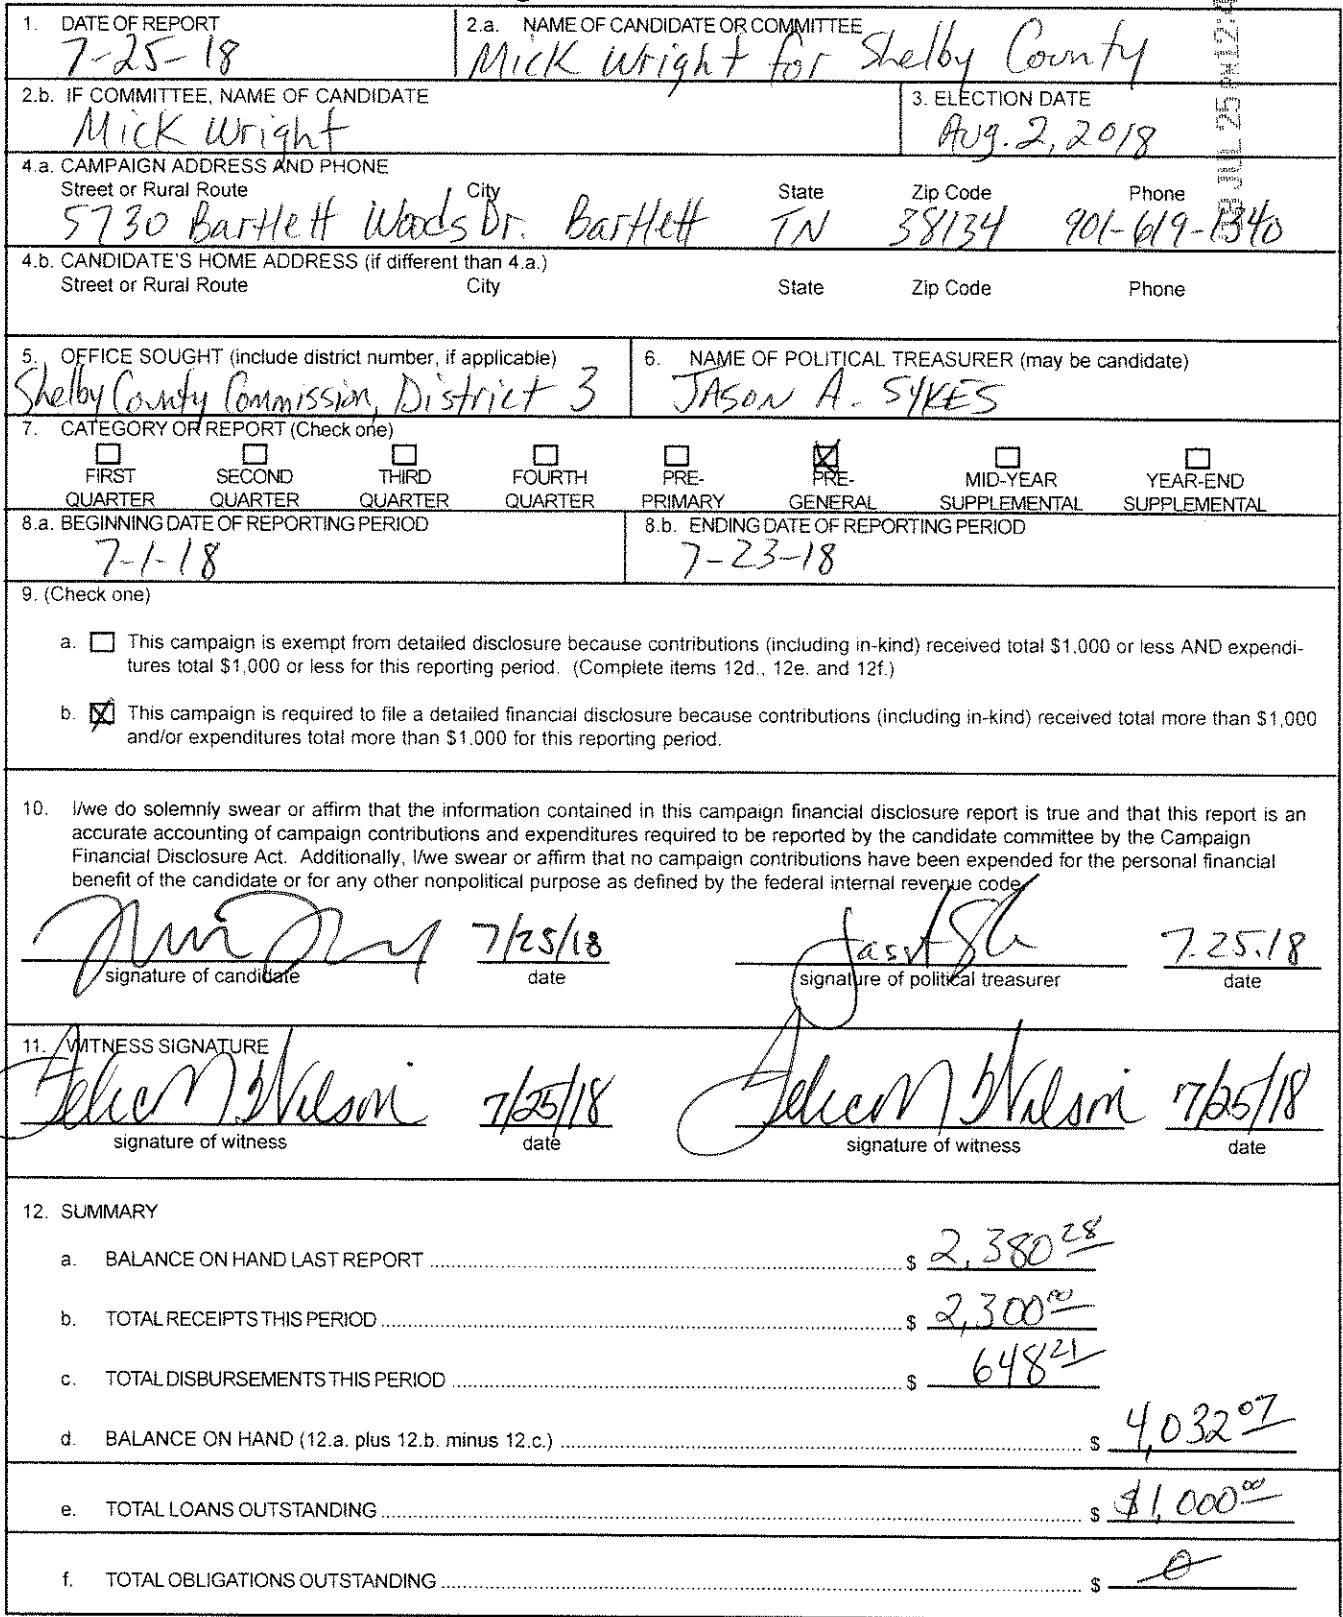 1. DATE OF REPORT
7-25-18
2.a. NAME OF CANDIDATE OR COMMITTEE
Mick Wright for Shelby County
2.b. IF COMMITTEE, NAME OF CANDIDATE
Mick Wright
3. ELECTION DATE
Aug. 2, 2018
JUL 25 PM 12:4
4.a. CAMPAIGN ADDRESS AND PHONE
Street or Rural Route City State Zip Code Phone
5730 Bartlett Woods Dr. Bartlett TN 38134 901-619-1340
4.b. CANDIDATE'S HOME ADDRESS (if different than 4.a.)
Street or Rural Route City State Zip Code Phone
5. OFFICE SOUGHT (include district number, if applicable)
Shelby County Commission, District 3
6. NAME OF POLITICAL TREASURER (may be candidate)
JASON A. SYKES
7. CATEGORY OF REPORT (Check one)
FIRST SECOND THIRD FOURTH PRE- PRE- MID-YEAR YEAR-END
QUARTER QUARTER QUARTER QUARTER PRIMARY GENERAL SUPPLEMENTAL SUPPLEMENTAL
8.a. BEGINNING DATE OF REPORTING PERIOD
7-1-18
8.b. ENDING DATE OF REPORTING PERIOD
7-23-18
9. (Check one)
a. This campaign is exempt from detailed disclosure because contributions (including in-kind) received total $1,000 or less AND expendi-
tures total $1,000 or less for this reporting period. (Complete items 12d., 12e. and 12f.)
b. This campaign is required to file a detailed financial disclosure because contributions (including in-kind) received total more than $1,000
and/or expenditures total more than $1.000 for this reporting period.
10. I/we do solemnly swear or affirm that the information contained in this campaign financial disclosure report is true and that this report is an
accurate accounting of campaign contributions and expenditures required to be reported by the candidate committee by the Campaign
Financial Disclosure Act. Additionally, I/we swear or affirm that no campaign contributions have been expended for the personal financial
benefit of the candidate or for any other nonpolitical purpose as defined by the federal internal revenue code.
7/25/18 7.25.18
signature of candidate date signature of political treasurer date
11. WITNESS SIGNATURE
Wilson 7/25/18 Wilson 7/25/18
signature of witness date signature of witness date
12. SUMMARY
a. BALANCE ON HAND LAST REPORT $ 2,380 28
b. TOTAL RECEIPTS THIS PERIOD $ 2,300 00
c. TOTAL DISBURSEMENTS THIS PERIOD $ 648 21
d. BALANCE ON HAND (12.a. plus 12.b. minus 12.c.) $ 4,032 07
e. TOTAL LOANS OUTSTANDING $ $1,000 00
f. TOTAL OBLIGATIONS OUTSTANDING $ 0